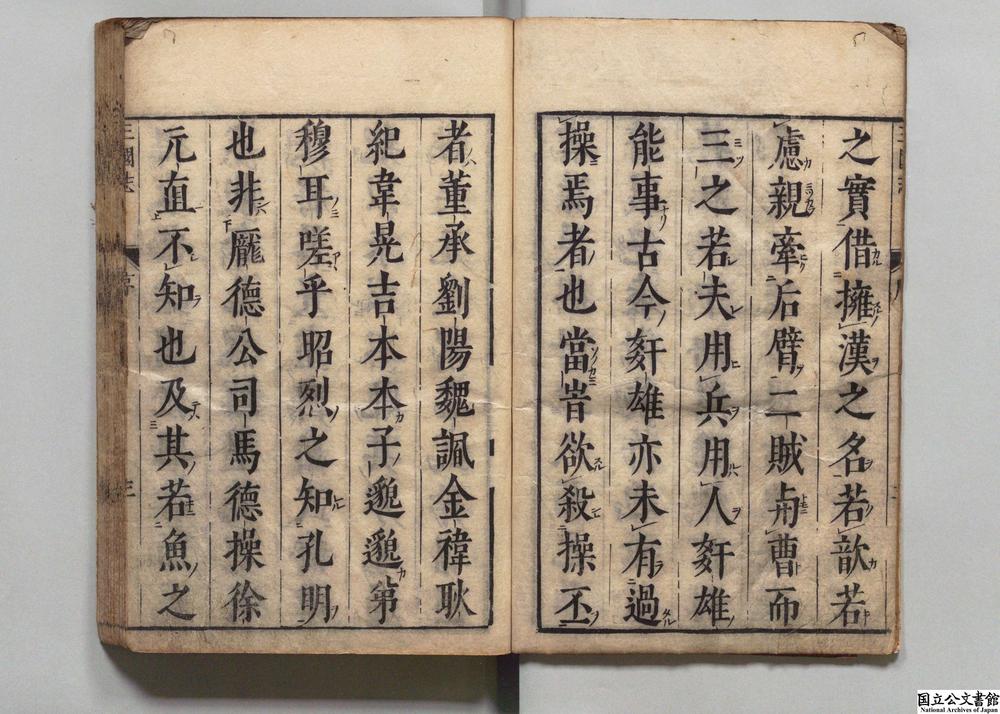 之實借擁漢之名若歆若
慮親牽后臂二賊與曹而
三之若夫用兵用人奸雄
能事古今奸雄亦未有過
操焉者也當旹欲殺操丕
者董承劉陽魏諷金禕耿
紀韋晃吉本本子邈邈第
穆耳嗟乎昭烈之知孔明
也非龐德公司馬德操徐
元直不知也及其若魚之
三國志
序
三
国立公文書館
National Archives of Japan